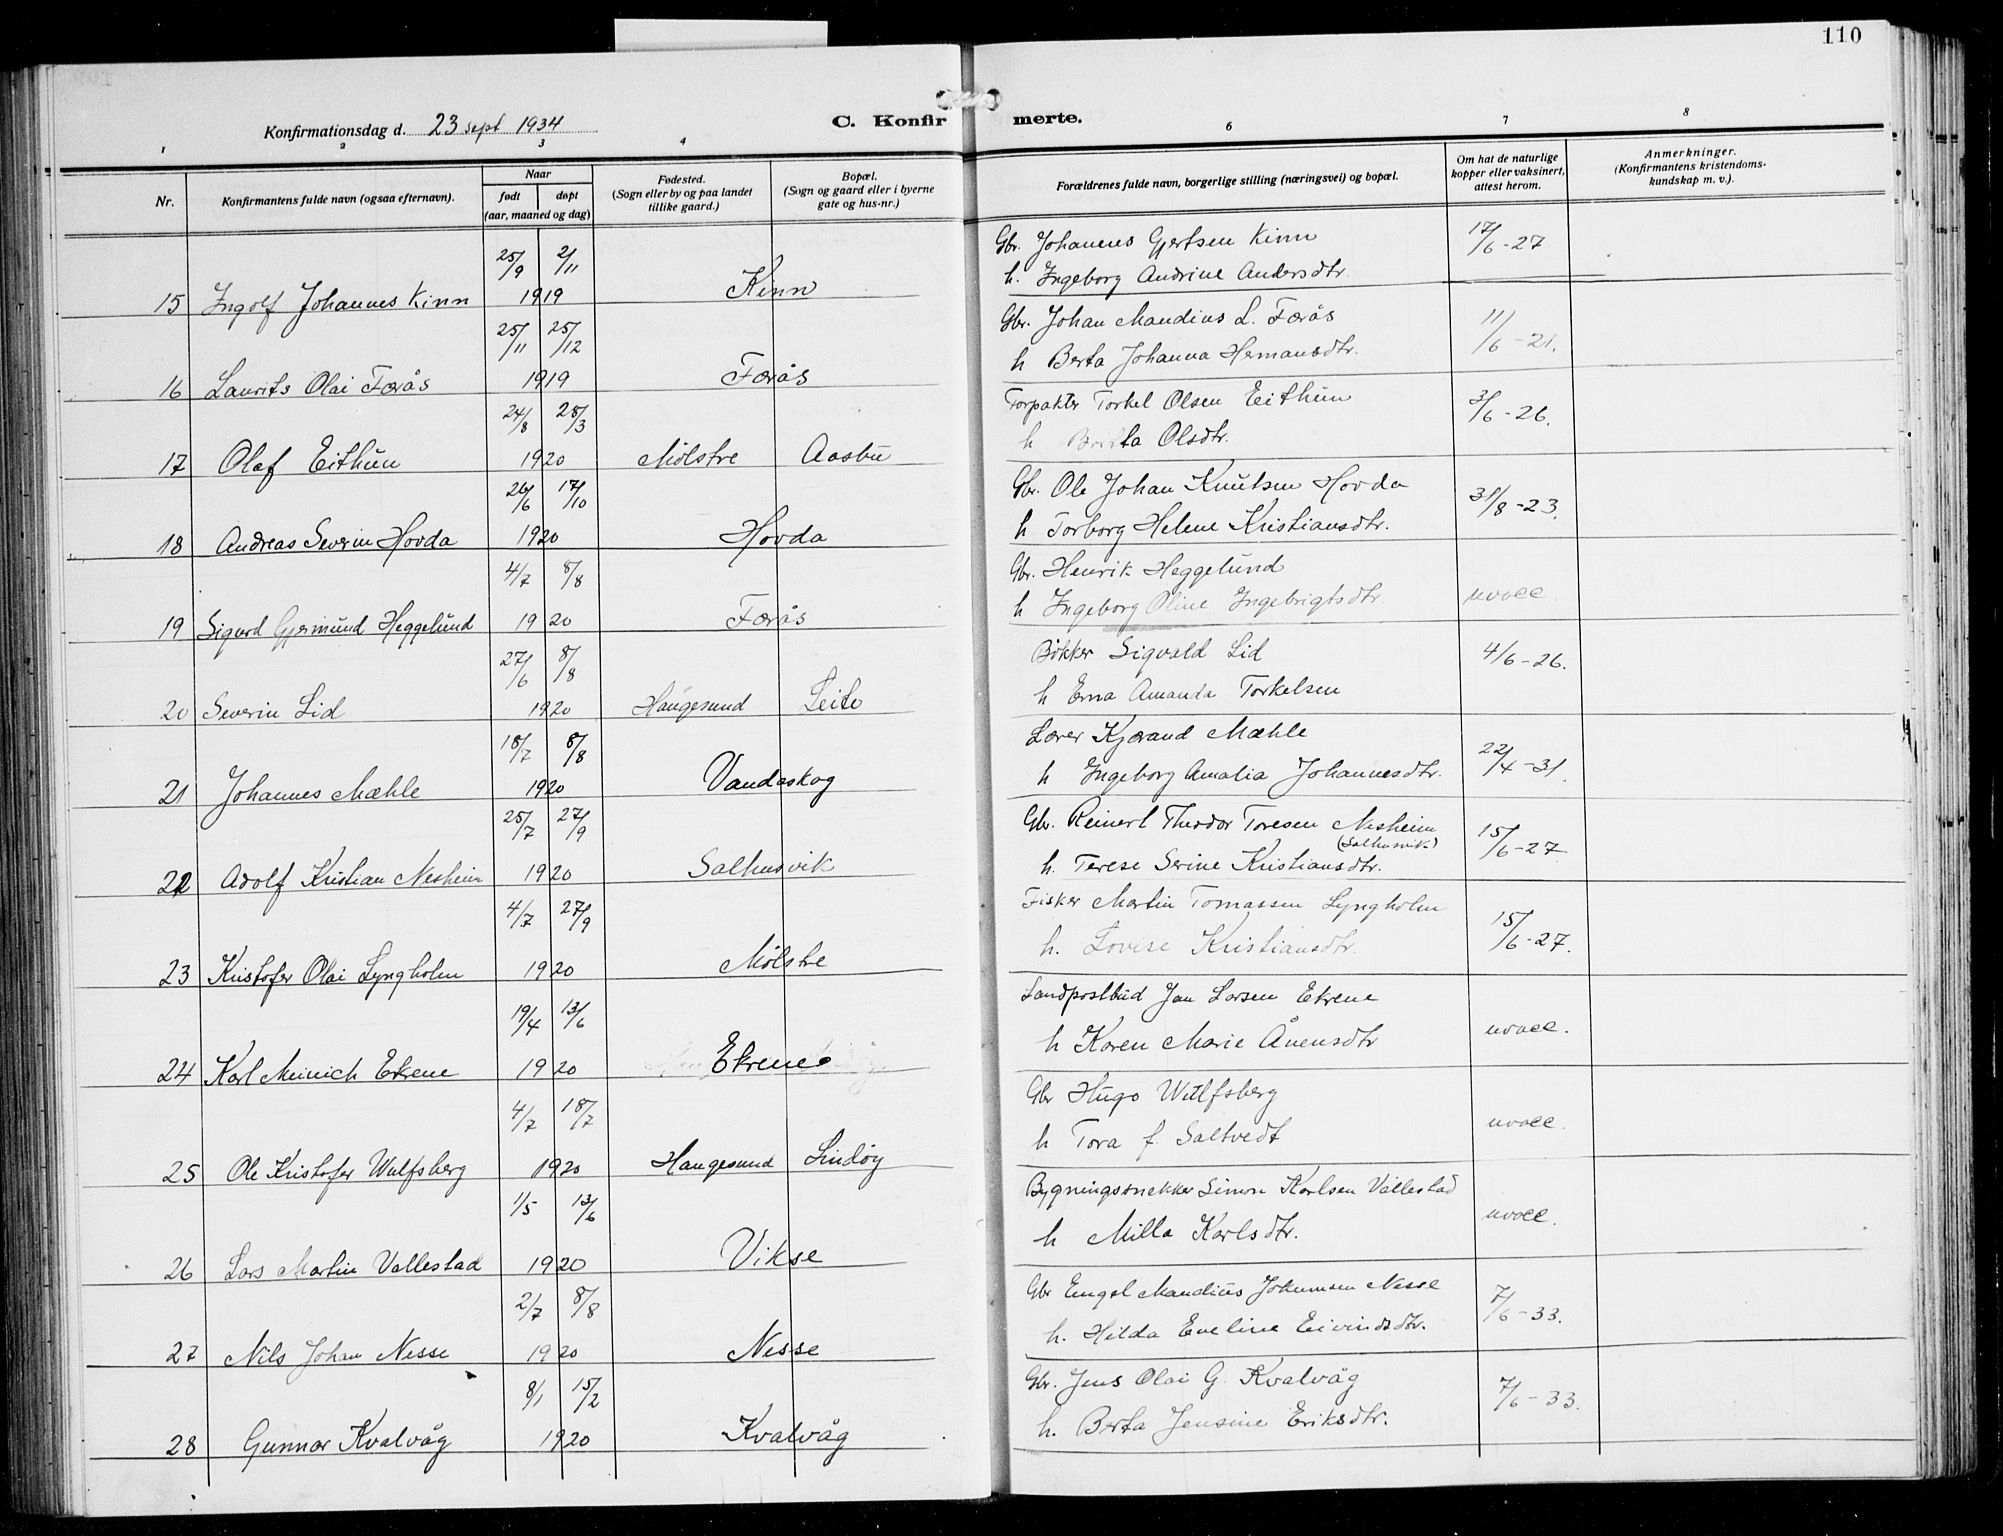 110
Konfirmationsdag d. 23 sept 1934
C. Konfirmerte.
1 2 3 4 6 7 8
Nr.
Konfirmantens fulde navn (ogsaa efternavn).
Naar
født døpt
(aar, maaned og dag)
Fødested.
(Sogn eller by og paa landet
tillike gaard.)
Bopæl.
(Sogn og gaard eller i byerne
gate og hus-nr.)
Forældrenes fulde navn, borgerlige stilling (næringsvei) og bopæl.
Om hat de naturlige
kopper eller vaksinert,
attest herom.
Anmerkninger.
(Konfirmantens kristendoms-
kundskap m. v.).
25/9 2/11 Gbr. Johannes Gjertsen Kinn 17/6-27
15 Ingolf Johannes Kinn 1919 Kinn h. Ingeborg Andrine Andersdtr.
25/11 25/12 Gbr. Johan Mandius L. Færås 11/6-21.
16 Laurits Olai Færås 1919 Færås h Berta Johanna Hemansdtr.
24/8 28/3 Torpakter Torkel Olsen Eithun 3/6-26.
17 Olaf Eithun 1920 Mølstre Aasbu h Britta Olsdtr.
26/6 17/10 Gbr. Ole Johan Knutsen Hovda 31/8-23.
18 Andreas Severin Hovda 1920 Hovda h Torborg Helene Kristiansdtr.
4/7 8/8 Gbr. Henrik Heggelund uvacc.
19 Sigurd Gjermund Heggelund 1920 Færås h Ingeborg Oline Ingebrigtsdtr.
27/6 8/8 Bøkker Sigvald Lid 4/6-26.
20 Severin Lid 1920 Haugesund Leite h Erna Amanda Torkelsen
18/7 8/8 Lærer Kjærand Mæhle 22/4-31.
21 Johannes Mæhle 1920 Vandaskog h Ingeborg Amalia Johannesdtr.
25/7 27/9 Gbr. Reinert Theodor Toresen Nesheim 15/6-27
(Salhusvik)
22 Adolf Kristian Nesheim 1920 Salhusvik h. Terese Serine Kristiansdtr.
4/7 27/9 Fisker Martin Tomassen Lyngholm 15/6-27.
23 Kristofer Olai Lyngholm 1920 Mølstre h. Lovise Kristiansdtr.
19/4 13/6 Landpostbud Jan Larsen Ekrene uvacc.
24 Karl Meinich Ekrene 1920 Ekrene h Karen Marie Ånensdtr
4/7 18/7 Gbr Hugo Wulfsberg uvacc.
25 Ole Kristofer Wulfsberg 1920 Haugesund Lindøy h Tora f. Saltvedt
1/5 13/6 Bygningssnekker Simon Karlsen Vallestad uvacc.
26 Lars Martin Vallestad 1920 Vikse h Milla Karlsdtr.
2/7 8/8 Gbr Engel Mandius Jokumsen Nesse 7/6-33.
27 Nils Johan Nesse 1920 Nesse h. Hilda Eveline Eivindsdtr.
8/1 15/2 Gbr. Jens Olai G. Kvalvåg 7/6-33.
28 Gunnar Kvalvåg 1920 Kvalvåg h. Berta Jensine Eriksdtr.